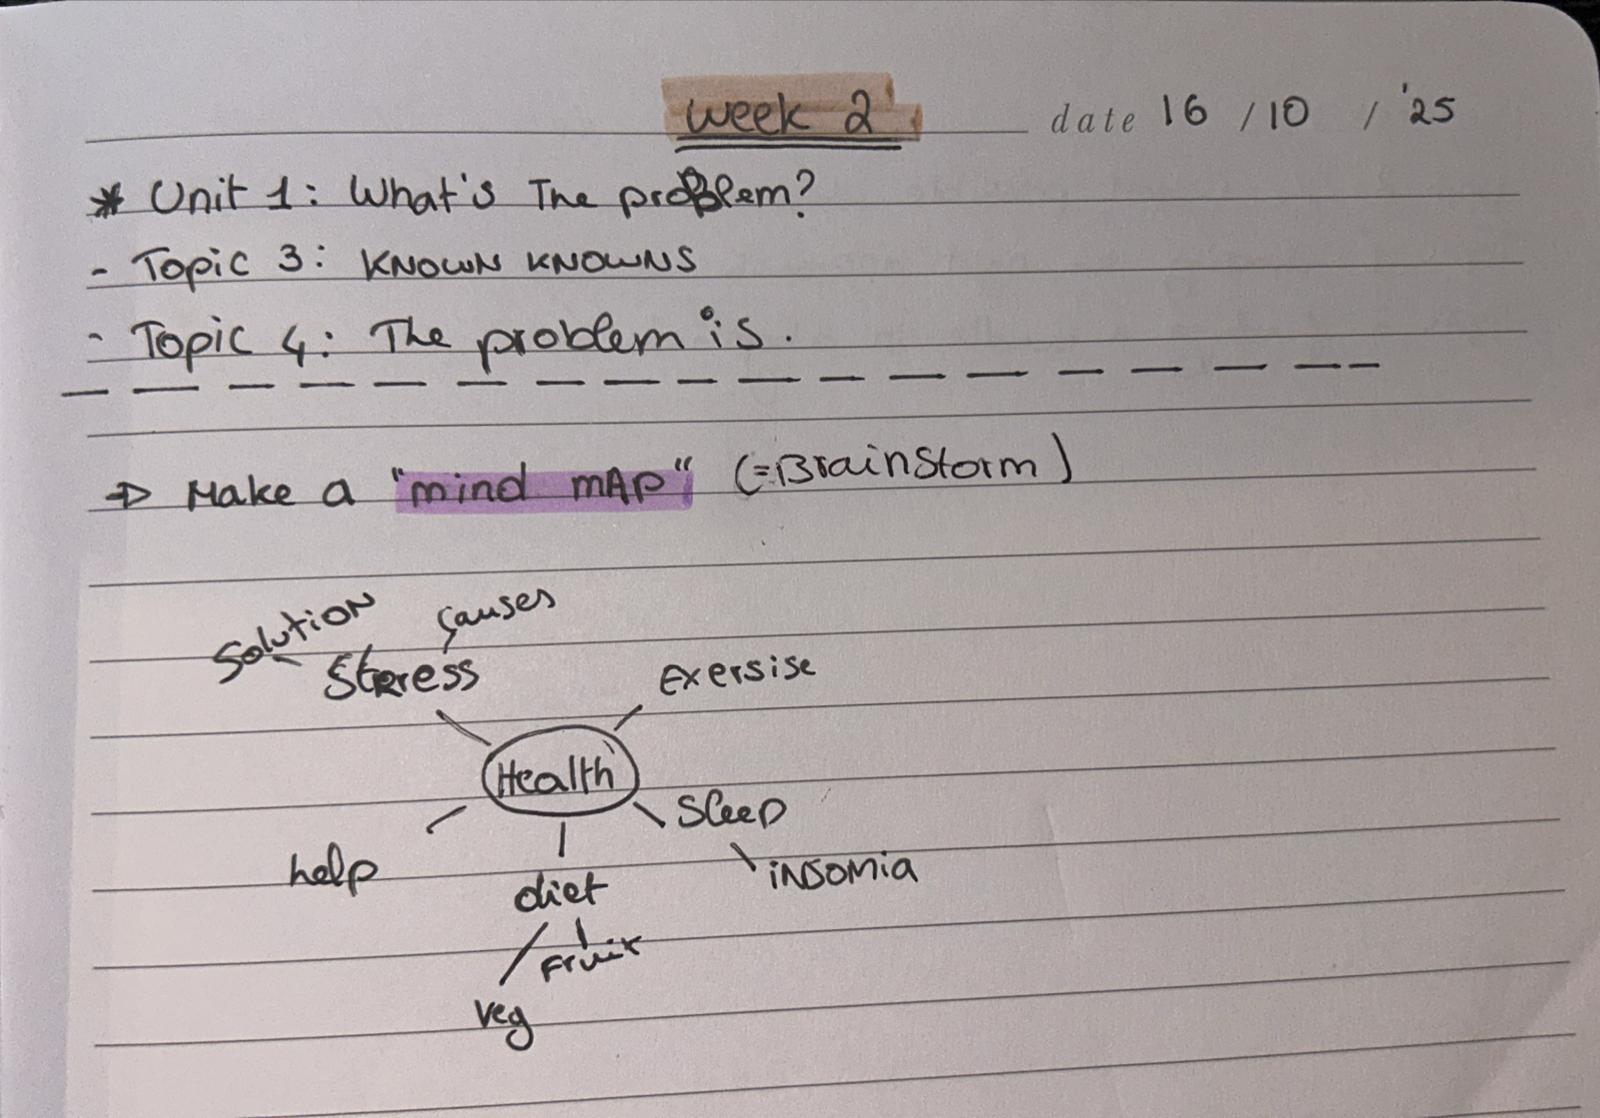 week 2
date 16 / 10 / '25
* Unit 1: What's The problem?
- Topic 3: KNOWN KNOWNS
- Topic 4: The problem is.
⇒ Make a "mind map" (=Brainstorm)
Solution
causes
Stress
Exersise
Health
Sleep
insomia
help
diet
Fruit
veg